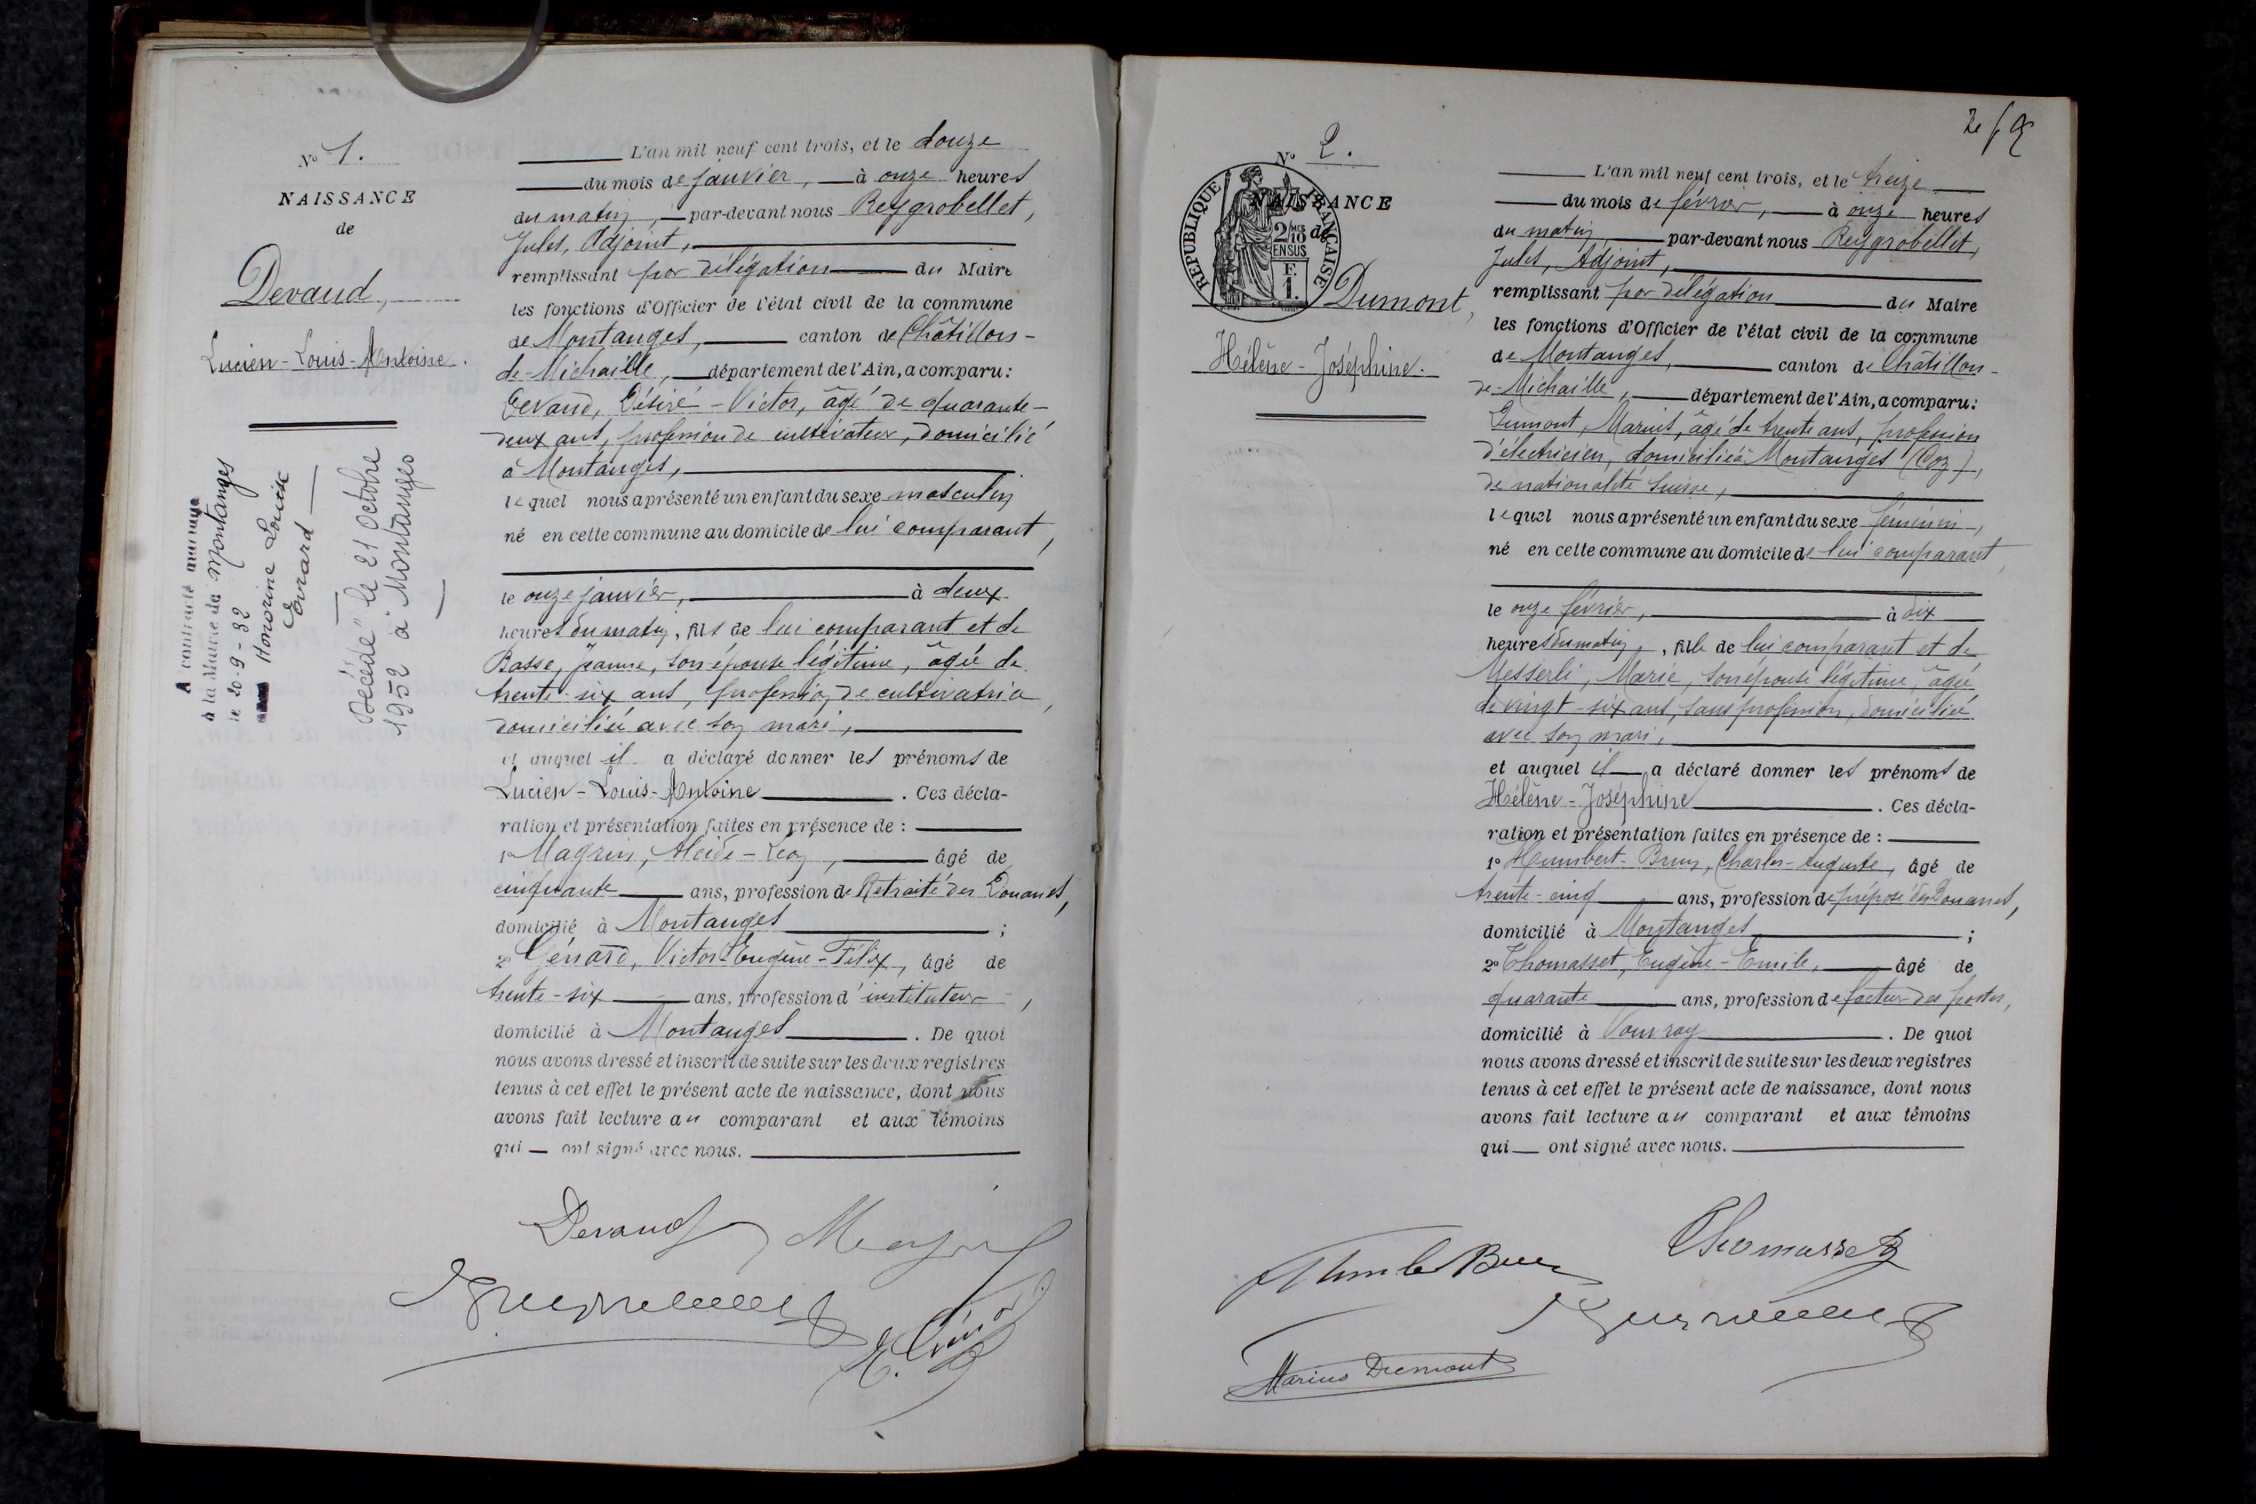 N° 1.
NAISSANCE
de
Devaud,
Lucien-Louis-Antoine.
A contracté mariage
à la Mairie de Montanges
le 20-9-32
Honorine Louise
Evrard
Décédé le 21 Octobre
1952 à Montanges
L'an mil neuf cent trois, et le douze
du mois de janvier, à onze heures
du matin, par-devant nous Reygrobellet,
Jules, Adjoint,
remplissant par délégation du Maire
les fonctions d'Officier de l'état civil de la commune
de Montanges, canton de Châtillon-
de-Michaille, département de l'Ain, a comparu:
Devaud, Désiré-Victor, âgé de quarante-
deux ans, profession de cultivateur, domicilié
à Montanges,
lequel nous a présenté un enfant du sexe masculin
né en cette commune au domicile de lui comparant,
le onze janvier, à deux
heures du matin, fils de lui comparant et de
Basse, Jeanne, son épouse légitime, âgée de
trente-six ans, profession de cultivatrice,
domiciliée avec son mari,
et auquel il a déclaré donner les prénoms de
Lucien-Louis-Antoine. Ces décla-
ration et présentation faites en présence de:
1° Magnin, Alcide-Léon, âgé de
cinquante ans, profession de Retraité des Douanes,
domicilié à Montanges;
2° Génard, Victor-Eugène-Félix, âgé de
trente-six ans, profession d'instituteur,
domicilié à Montanges. De quoi
nous avons dressé et inscrit de suite sur les deux registres
tenus à cet effet le présent acte de naissance, dont nous
avons fait lecture au comparant et aux témoins
qui ont signé avec nous.
Devaud
N° 2.
NAISSANCE
de
RÉPUBLIQUE FRANÇAISE
2/10 EN SUS
F.
1.
Dumont,
Hélène-Joséphine.
L'an mil neuf cent trois, et le treize
du mois de février, à onze heures
du matin, par-devant nous Reygrobellet,
Jules, Adjoint,
remplissant par délégation du Maire
les fonctions d'Officier de l'état civil de la commune
de Montanges, canton de Châtillon-
de-Michaille, département de l'Ain, a comparu:
Dumont, Marius, âgé de trente ans, profession
d'électricien, domicilié à Montanges (Coz),
de nationalité suisse,
lequel nous a présenté un enfant du sexe féminin,
né en cette commune au domicile de lui comparant,
le onze février, à dix
heures du matin, fille de lui comparant et de
Messerli, Marie, son épouse légitime, âgée
de vingt-six ans, sans profession, domiciliée
avec son mari,
et auquel il a déclaré donner les prénoms de
Hélène-Joséphine. Ces décla-
ration et présentation faites en présence de:
1° Humbert-Brun, Charles-Auguste, âgé de
trente-cinq ans, profession de préposé des Douanes,
domicilié à Montanges;
2° Thomasset, Eugène-Emile, âgé de
quarante ans, profession de facteur des postes,
domicilié à Vouvray. De quoi
nous avons dressé et inscrit de suite sur les deux registres
tenus à cet effet le présent acte de naissance, dont nous
avons fait lecture au comparant et aux témoins
qui ont signé avec nous.
Thomasset
Marius Dumont